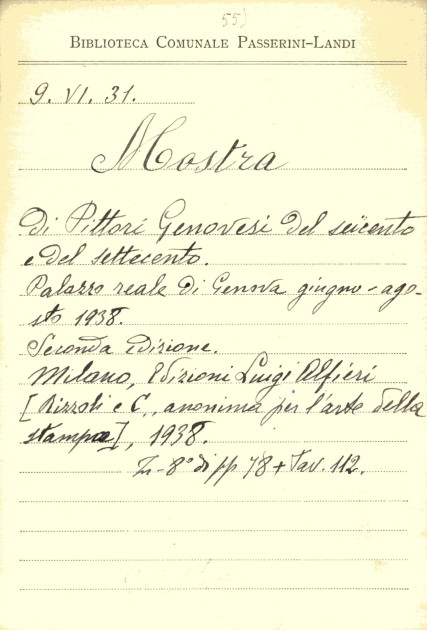 55)
BIBLIOTECA COMUNALE PASSERINI-LANDI
9. VI. 31.
Mostra
di Pittori Genovesi del seicento
e del settecento.
Palazzo reale di Genova giugno - ago-
sto 1938.
Seconda edizione.
Milano, Edizioni Luigi Alfieri
[Rizzoli e C., anonima per l'arte della
stampa], 1938.
In-8° di pp 78 + Tav. 112.